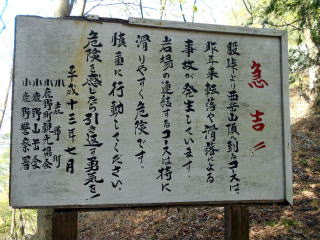 急告!!
股峠より両岳山頂に到るコースは
昨年来転落や滑落による
事故が発生しています。
岩場の連続するコースは特に
滑りやすく危険です。
慎重に行動してください。
危険を感じたら引き返す勇気を!
平成十三年七月
小鹿野町
小鹿野町観光協会
小鹿野山岳会
小鹿野警察署